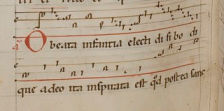 O beata infantia electi dei si bo di
que adeo ita inspirata est qd postea sanc